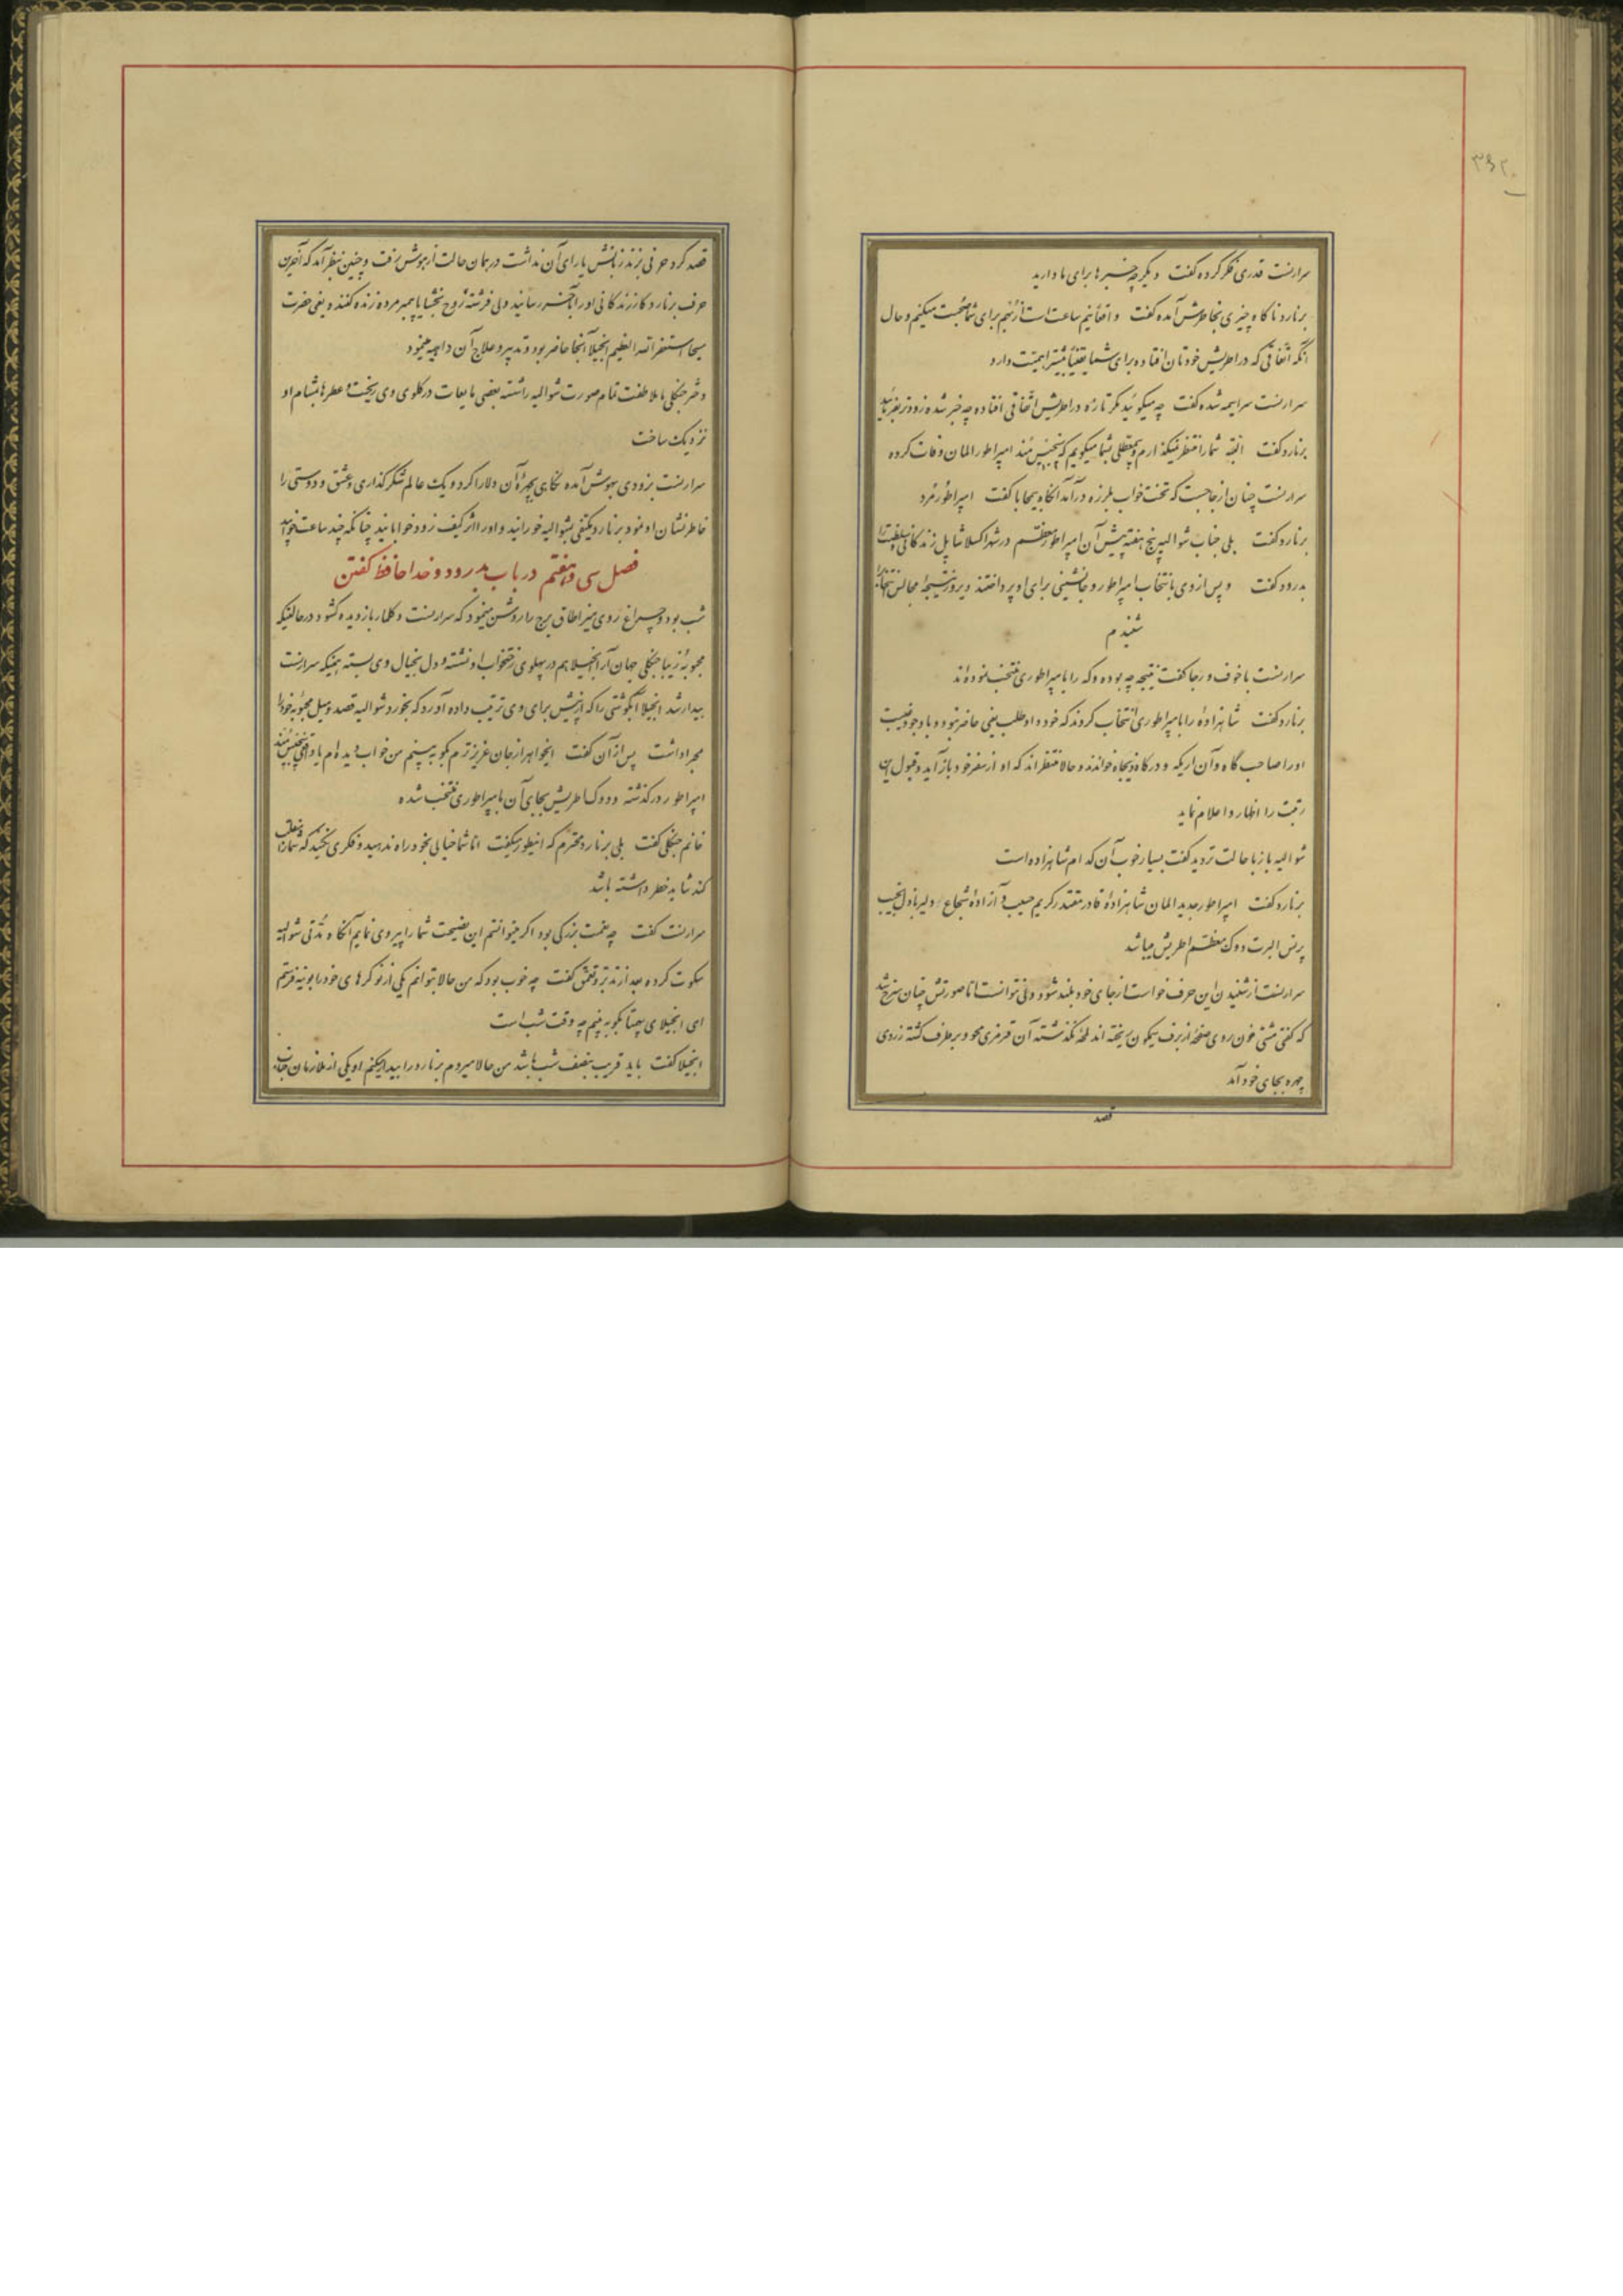 ۳۶۲
سرارنست قدری فکر کرده گفت دیگر چه خبرها برای ما دارید
برنارد ناگاه چیزی بخاطرش آمده گفت واقعاً نیم ساعت است از رُم برای شما صحبت میکنم و حال
آنکه اتفاقی که در اطریش خودتان افتاده برای شما یقیناً بیشتر اهمیت دارد
سرارنست سراسیمه شده گفت چه میگوئید مگر تازه در اطریش اتفاقی افتاده چه خبر شده زودتر بفرمائید
برنارد گفت البته شما را منتظر نمیگذارم و بی معطلی بشما میگویم که امپراطور المان وفات کرده
سرارنست چنان از جا جست که تخت خواب بلرزه درآمد آنگاه بیمحابا گفت امپراطور مُرد
برنارد گفت بلی جناب شوالیه پنج هفته پیش آن امپراطور معظم در شهر اکسلا شاپل زندگانی و سلطنت را
بدرود گفت و پس از وی بانتخاب امپراطور و جانشینی برای او پرداختند و دیروز نتیجه مجالس انتخاب را
شنیدم
سرارنست با خوف و رجا گفت نتیجه چه بوده و که را بامپراطوری منتخب نموده‌اند
برنارد گفت شاهزاده را بامپراطوری انتخاب کردند که خود داوطلب یعنی حاضر نبود و با وجود غیبت
او را صاحب گاه و آن اریکه و درگاه ذیجاه خواندند و حالا منتظراند که او از سفر خود باز آید و قبول این
رتبت را اظهار و اعلام نماید
شوالیه باز با حالت تردید گفت بسیار خوب آن کدام شاهزاده است
برنارد گفت امپراطور جدید المان شاهزاده قادر مقتدر کریم حسیب و آزاده شجاع دلیر باذل نجیب
پرنس البرت دوک معظم اطریش میباشد
سرارنست از شنیدن این حرف خواست از جای خود بلند شود ولی نتوانست اما صورتش چنان سرخ شد
که گفتی مشتی خون روی صفحه از برف نیمگون ریخته اند لمحه نگذشته آن قرمزی محو و برطرف گشته زردی
چهره بجای خود آمد
قصد
قصد کرد حرفی بزند زبانش یارای آن نداشت در همان حالت از هوش برفت و چنین بنظر آمد که آخرین
حرف برنارد کار زندگانی او را بآخر رسانید ولی فرشته روح بخش یا پیمبر مرده زنده کننده یعنی حضرت
مسیحا استغفر الله العظیم انجیلا آنجا حاضر بود و تدبیر و علاج آن داهیه مینمود
دختر جنگلی با ملاطفت تمام صورت شوالیه را شسته بعضی مایعات در گلوی وی ریخت و عطرها بمشام او
نزدیک ساخت
سرارنست بزودی بهوش آمده نگاهی بچهره آن دلارا کرد و یک عالم شکرگذاری و عشق و دوستی را
خاطر نشان او نمود برنارد یکنفی بشوالیه خورانید و او را اثر کیف زود خوابانید چنانکه چند ساعت خوابید
فصل سی و هفتم در باب بدرود و خداحافظ گفتن
شب بود و چراغ روی میز اطاق برج را روشن مینمود که سرارنست دگلمار باز دیده گشود در حالتیکه
محبوبه زیبا جنگلی جهان آرا انجیلا هم در پهلوی رختخواب او نشسته و دل بخیال وی بسته همینکه سرارنست
بیدار شد انجیلا آبگوشتی را که از پیش برای وی ترتیب داده آورد که بخورد شوالیه قصد و میل محبوبه خود را
مجرا داشت پس از آن گفت ایخواهر از جان عزیزترم بگو ببینم من خواب دیده‌ام یا واقعاً
امپراطور درگذشته و دوک اطریش بجای آن بامپراطوری منتخب شده
خانم جنگلی گفت بلی برنارد محترم که اینطور میگفت اما شما خیالی بخود راه ندهید و فکری نکنید که شما را
کند شاید خطر داشته باشد
سرارنست گفت چه نعمت بزرگی بود اگر میتوانستم این نصیحت شما را پیروی نمایم آنگاه مدتی شوالیه
سکوت کرده بعد از تدبر و تعمق گفت چه خوب بود که من حالا بتوانم یکی از نوکرهای خود را بوینه فرستم
ای انجیلای بیهمتا بگو ببینم چه وقت شب است
انجیلا گفت باید قریب بنصف شب باشد من حالا میروم برنارد را بیدار میکنم او یکی از ملازمان جناب